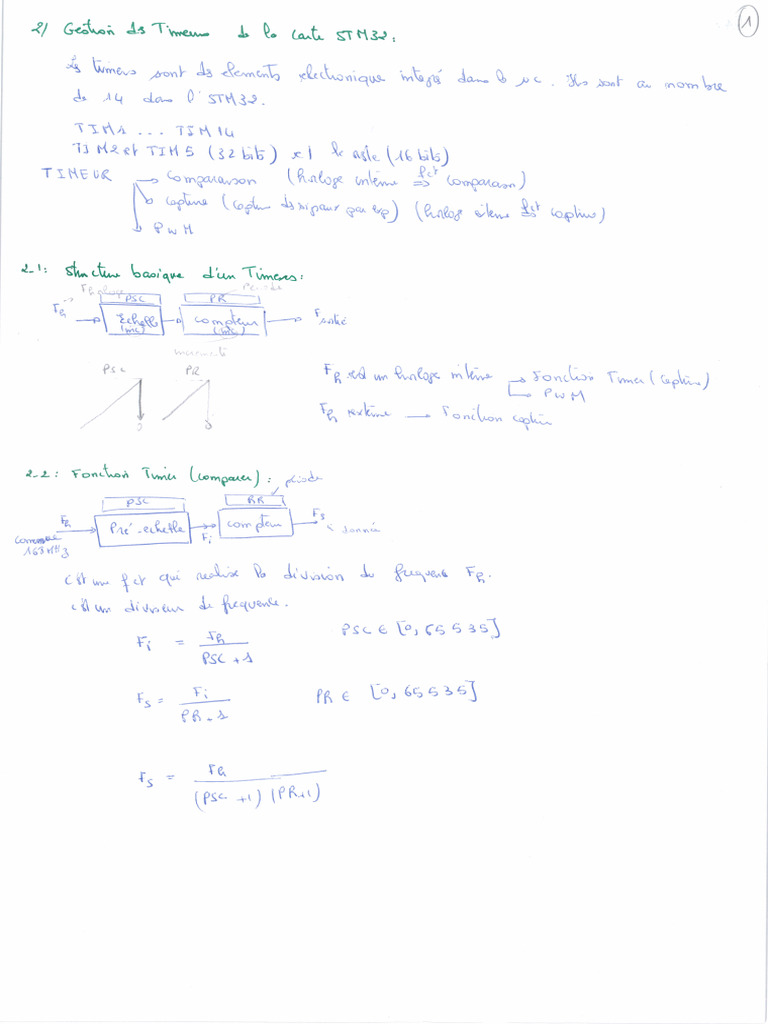 1
2) Gestion des Timeurs de la carte STM32:
Les timers sont des elements electronique integré dans le µc. Ils sont au nombre
de 14 dans l'STM32.
TIM1 ... TIM14
TIM2 et TIM5 (32 bits) et le reste (16 bits)
TIMEUR → comparaison (horloge interne fct ⇒ comparaison)
capture (capture des signaux par exp) (horloge externe fct ⇒ capture)
PWM
2-1: Structure basique d'un Timeurs:
Fh horloge PSC PR Periode
Fh → Echelle (inc) → compteur (inc) → F sortie
incremente
PSC PR
0 0
Fh est un horloge interne → Fonction Timer (capture)
PWM
Fh externe → Fonction capture
2-2: Fonction Timer (comparer):
PSC RR période
Fh Pré-echelle Fi compteur Fs
168 MHz donnée
c'est une fct qui realise la division du frequence Fh.
c'est un diviseur de frequence.
Fi = Fh / PSC + 1 PSC ∈ [0, 65535]
Fs = Fi / PR + 1 PR ∈ [0, 65535]
Fs = Fh / (PSC + 1) (PR+1)